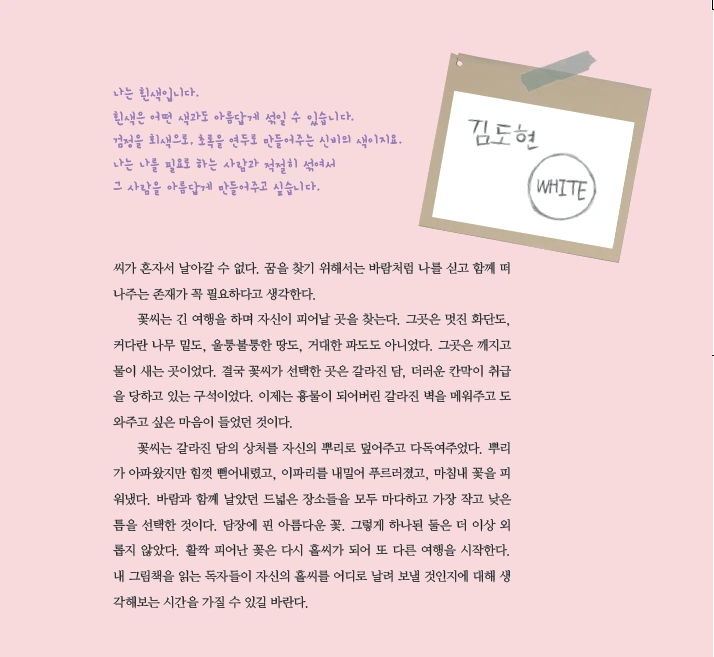 나는 흰색입니다.
흰색은 어떤 색과도 아름답게 섞일 수 있습니다.
검정을 회색으로, 초록을 연두로 만들어주는 신비의 색이지요.
나는 나를 필요로 하는 사람과 적절히 섞여서
그 사람을 아름답게 만들어주고 싶습니다.
김도현
WHITE
씨가 혼자서 날아갈 수 없다. 꿈을 찾기 위해서는 바람처럼 나를 싣고 함께 떠
나주는 존재가 꼭 필요하다고 생각한다.
꽃씨는 긴 여행을 하며 자신이 피어날 곳을 찾는다. 그곳은 멋진 화단도,
커다란 나무 밑도, 울퉁불퉁한 땅도, 거대한 파도도 아니었다. 그곳은 깨지고
물이 새는 곳이었다. 결국 꽃씨가 선택한 곳은 갈라진 담, 더러운 칸막이 취급
을 당하고 있는 구석이었다. 이제는 흉물이 되어버린 갈라진 벽을 메워주고 도
와주고 싶은 마음이 들었던 것이다.
꽃씨는 갈라진 담의 상처를 자신의 뿌리로 덮어주고 다독여주었다. 뿌리
가 아파왔지만 힘껏 뻗어내렸고, 이파리를 내밀어 푸르러졌고, 마침내 꽃을 피
워냈다. 바람과 함께 날았던 드넓은 장소들을 모두 마다하고 가장 작고 낮은
틈을 선택한 것이다. 담장에 핀 아름다운 꽃. 그렇게 하나된 둘은 더 이상 외
롭지 않았다. 활짝 피어난 꽃은 다시 홀씨가 되어 또 다른 여행을 시작한다.
내 그림책을 읽는 독자들이 자신의 홀씨를 어디로 날려 보낼 것인지에 대해 생
각해보는 시간을 가질 수 있길 바란다.